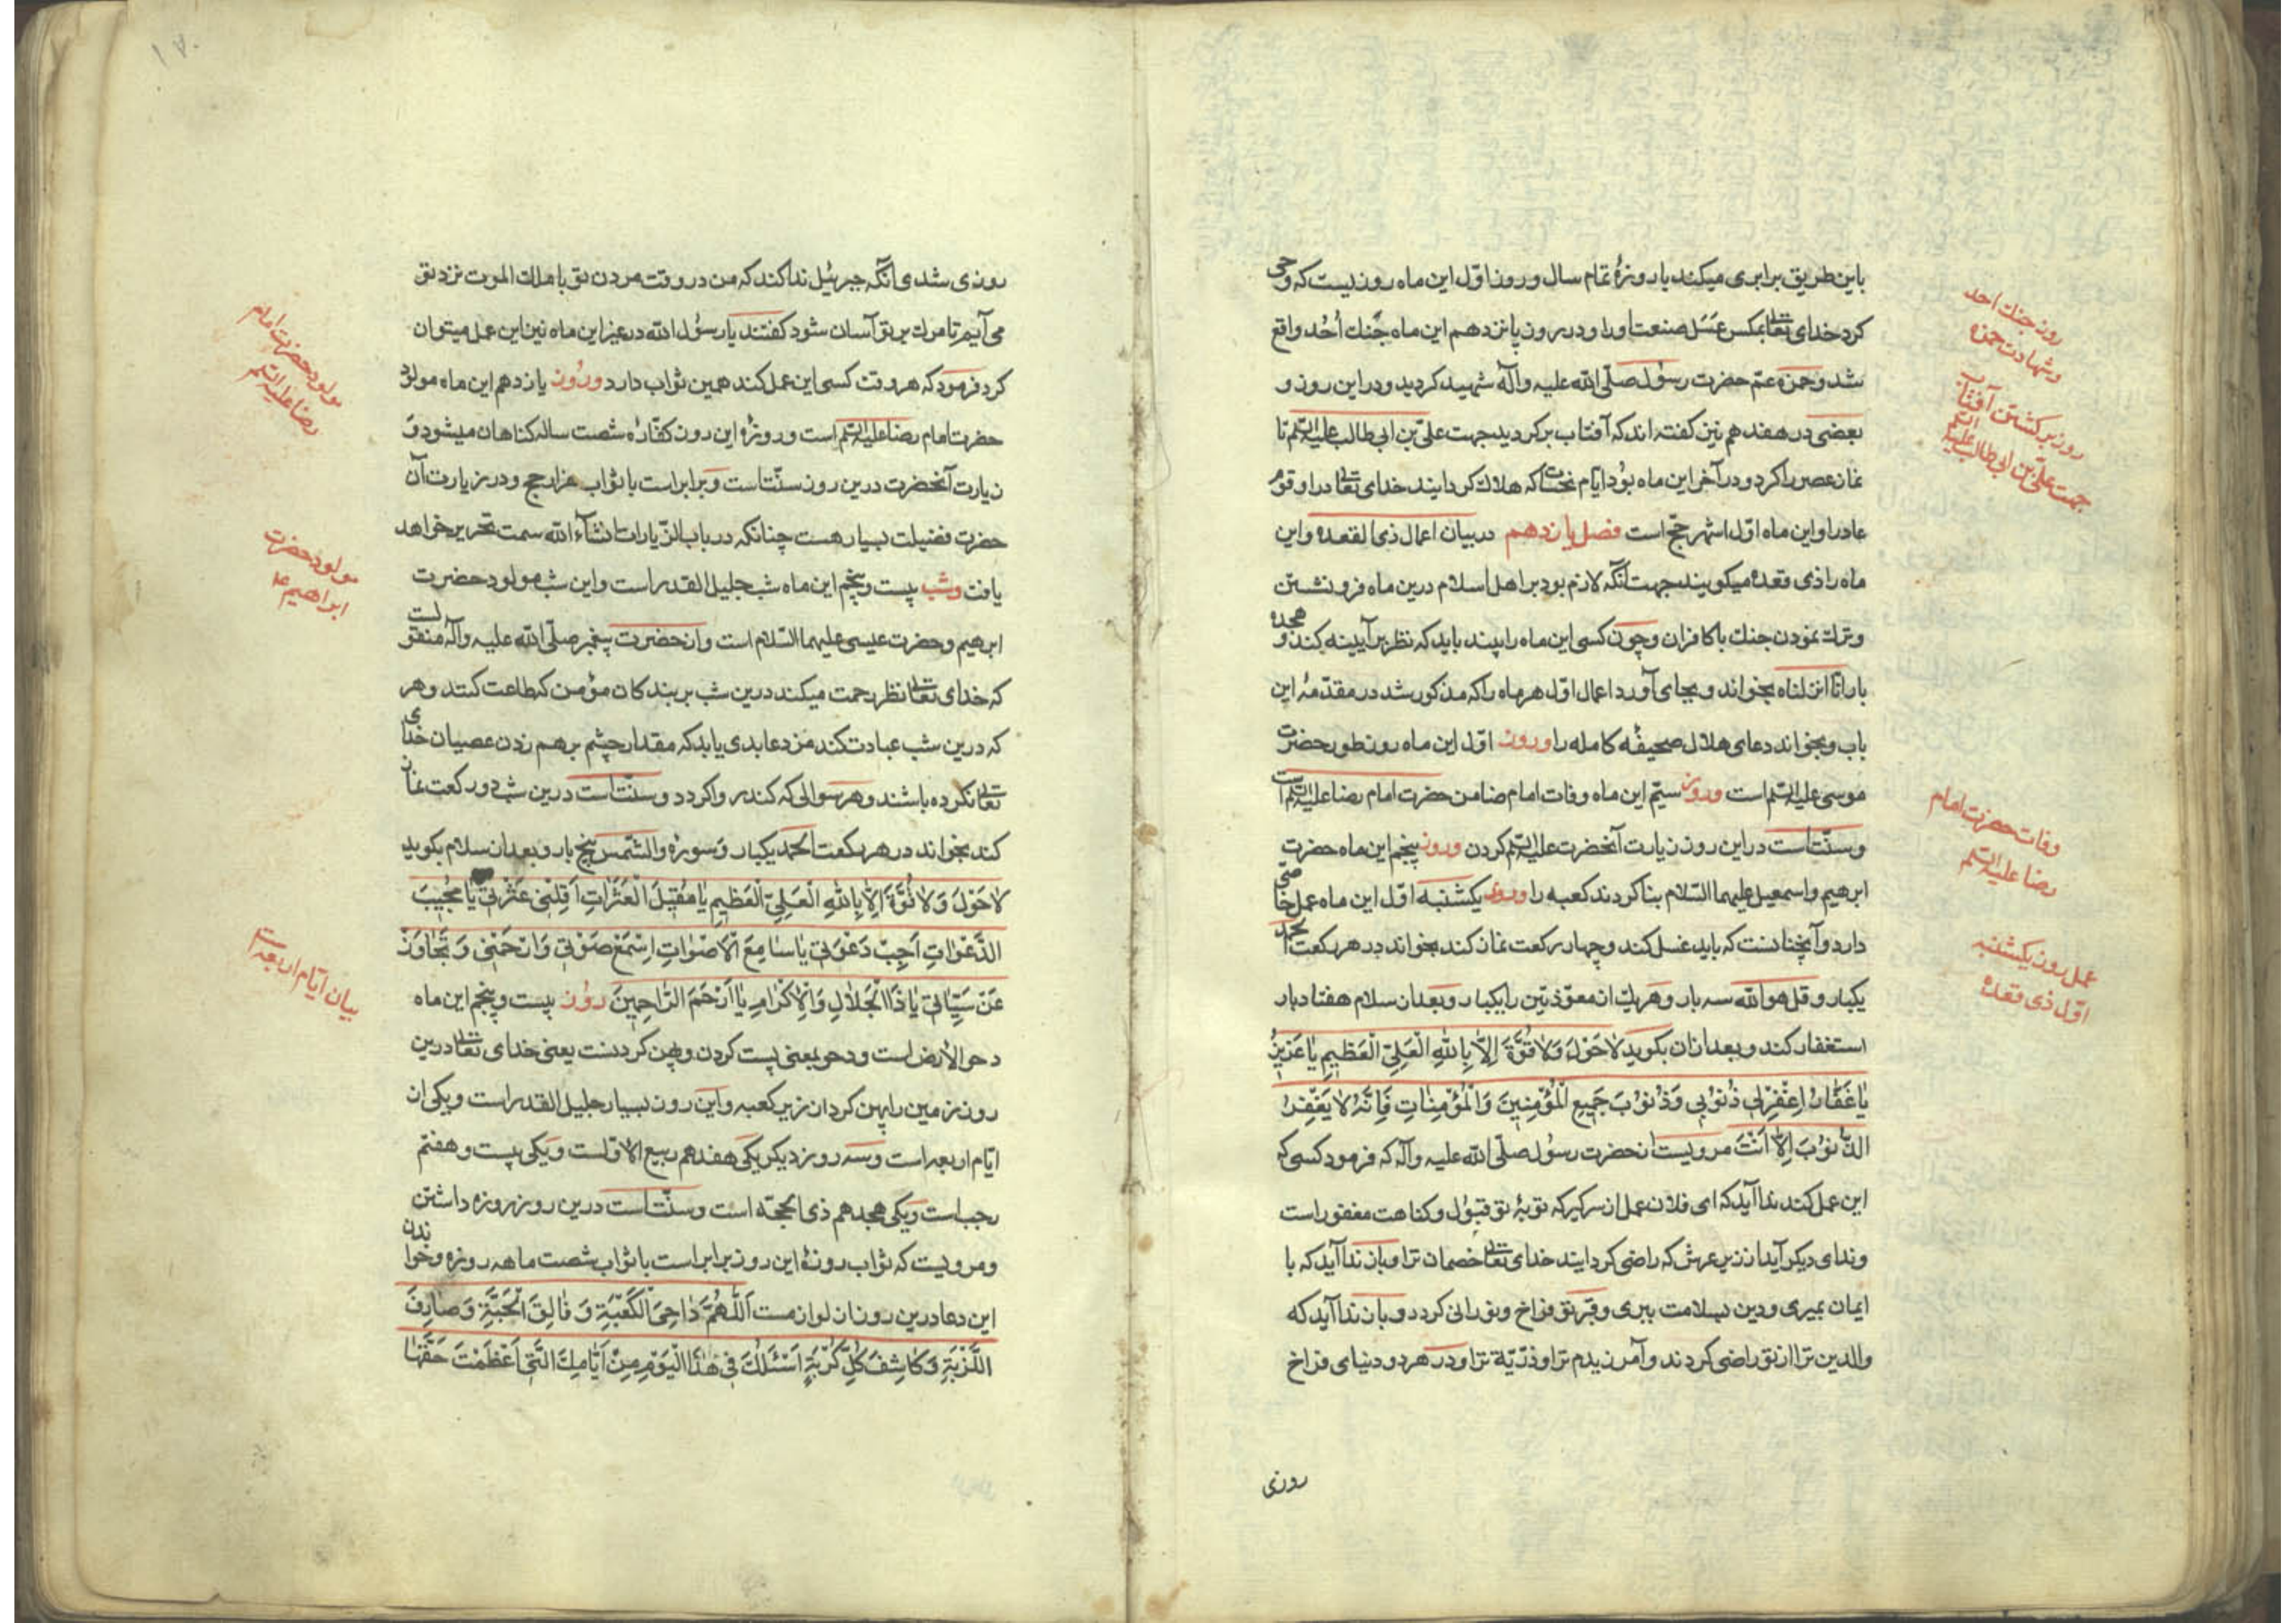 باین طریق برابری میکند با روزهٔ تمام سال و روز اوّل این ماه روزیست که وحی
کرد خدای تعالی بمکس عسَل صنعت اورا و در روز پانزدهم این ماه جنك اُحُد واقع
شد و حمزه عمّ حضرت رسُول صلّی الله علیه وآله شهید کردید و در این روز و
بعضی در هفدهم نیز کفته اند که آفتاب برکردید جهت علیّ بن ابی طالب علیه السّلم تا
نماز عصر را کرد و در آخر این ماه بوُد ایّام نحسات که هلاك کردانید خدای تعالی در او قوم
عاد را و این ماه اوّل اشهر حجّ است فصل یازدهم در بیان اعمال ذی القعده و این
ماه را ذی قعده میکویند جهت آنکه لازم بود بر اهل اسلام درین ماه فرو نشستن
و ترك نمودن جنك با کافران و چون کسی این ماه را بیند باید که نظر بر آیینه کند و هجده
بار انّا انزلناه بخواند و بجای آورد اعمال اوّل هر ماه را که مذکور شد در مقدّمهٔ این
باب و بخواند دعای هلال صحیفهٔ کامله را و روز اوّل این ماه روز طور حضرت
موسی علیه السّلم است و روز سیّم این ماه وفات امام ضامن حضرت امام رضا علیه السّلم است
و سنّت است در این روز زیارت آنحضرت علیه السّلم کردن و روز پنجم این ماه حضرت
ابرهیم و اسمعیل علیهما السّلام بنا کردند کعبه را و روز یکشنبه اوّل این ماه عمل خاصّی
دارد و آنچنانست که باید غسل کند و چهار رکعت نماز کند بخواند در هر رکعت الحمد
یکبار و قل هو الله سه بار و هر یك از معوّذتین را یکبار و بعد از سلام هفتاد بار
استغفار کند و بعد از ان بکوید لا حَولَ وَلا قُوَّةَ اِلّا بِاللهِ الْعَلِیِّ الْعَظیمِ یا عَزیزُ
یا غَفّارُ اِغْفِرْلی ذُنُوبی وَذُنُوبَ جَمیعِ الْمُؤْمِنینَ وَالْمُؤْمِناتِ فَاِنَّهُ لا یَغْفِرُ
الذُّنُوبَ اِلّا اَنْتَ مرویست از حضرت رسُول صلّی الله علیه وآله که فرمود کسی که
این عمل کند ندا آید که ای فلان عمل از سر کیر که توبهٔ تو قبوُل و کناهت مغفور است
و ندای دیکر آید از زیر عرش که راضی کردانید خدای تعالی خصمان ترا و باز ندا آید که با
ایمان بمیری و دین بسلامت ببری و قبر تو فراخ و نورانی کردد و باز ندا آید که
والدین ترا از تو راضی کردند و آمرزیدم ترا و ذرّیّة ترا و در هر دو دنیای فراخ
روزی
روز جنك احد
و شهادت حمزه
روز برکشتن آفتاب
جهت علیّ بن ابی طالب علیه السّلم
وفات حضرت امام
رضا علیه السّلم
عمل روز یکشنبه
اوّل ذی قعدهٔ
۱۸۰
روزی شدی آنکه جبرئیل ندا کند که من در وقت مردن تو با ملك الموت نزد تو
می آیم تا مرك بر تو آسان شود کفتند یا رسوُل الله در غیر این ماه نیز این عمل میتوان
کرد فرموُد که هر وقت کسی این عمل کند همین ثواب دارد و روُز یازدهم این ماه مولوُد
حضرت امام رضا علیه السّلم است و روزهٔ این روز کفّارهٔ شصت ساله کناهان میشود وَ
زیارت آنحضرت درین روز سنّت است و برابر است با ثواب هزار حج و در زیارت آن
حضرت فضیلت بسیار هست چنانکه در باب الزّیارات انشآء الله سمت تحریر خواهد
یافت وشب بیست و پنجم این ماه شب جلیل القدر است و این شب مولود حضرت
ابرهیم و حضرت عیسی علیهما السّلام است و از حضرت پیغمبر صلّی الله علیه وآله منقولست
که خدای تعالی نظر رحمت میکند درین شب بر بندکان مؤمن که طاعت کنند و هر
که درین شب عبادت کند مزد عابدی یابد که مقدار چشم بر هم زدن عصیان خدای
تعالی نکرده باشند و هر سوالی که کند روا کردد و سنّت است درین شب دو رکعت نماز
کند بخواند در هر رکعت الحمد یکبار و سورهٔ والشّمس پنج بار و بعد از سلام بکوید
لا حَوْلَ وَلا قُوَّةَ اِلّا بِاللهِ الْعَلِیِّ الْعَظیمِ یا مُقیلَ الْعَثَراتِ اَقِلْنی عَثْرَتی یا مُجیبَ
الدَّعَواتِ اَجِبْ دَعْوَتی یا سامِعَ الْاَصْواتِ اِسْمَعْ صَوْتی وَارْحَمْنی وَ تَجاوَزْ
عَنْ سَیِّئاتی یا ذَا الْجَلالِ وَالْاِکْرامِ یا اَرْحَمَ الرّاحِمینَ روُز بیست و پنجم این ماه
دحو الارض است و دحو بمعنی پست کردن و پهن کردنست یعنی خدای تعالی درین
روز زمین را پهن کرد از زیر کعبه و این روز بسیار جلیل القدر است و یکی از
ایّام اربعه است و سه روز دیکر یکی هفدهم ربیع الاوّلست و یکی بیست و هفتم
رجب است و یکی هجدهم ذی الحجّه است و سنّت است درین روز روزه داشتن
و مرویست که ثواب روزهٔ این روز برابر است با ثواب شصت ماهه روزه و خواندن
این دعا درین روز از لوازمست اَللّٰهُمَّ داحِیَ الْکَعْبَةِ وَ فالِقَ الْحَبَّةِ وَ صارِفَ
اللَّزْبَةِ وَ کاشِفَ کُلِّ کُرْبَةٍ اَسْئَلُكَ فی هٰذَا الْیَوْمِ مِنْ اَیّامِكَ الَّتی اَعْظَمْتَ حَقَّها
مولود حضرت امام
رضا علیه السّلم
مولود حضرت
ابراهیم ع
بیان ایّام اربعه است